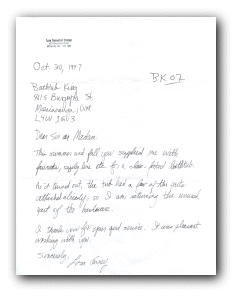 Oct. 30, 1997
BK 07
Bathtub King
Mississauga, Ont.
Dear Sir or Madam:
This summer and fall you supplied me with
faucets, supply line etc for a claw-footed bathtub.
As it turned out, the tub had a few of the parts
attached already; so I am returning the unused
part of the hardware.
I thank you for your good service. It was pleasant
working with you.
Sincerely,